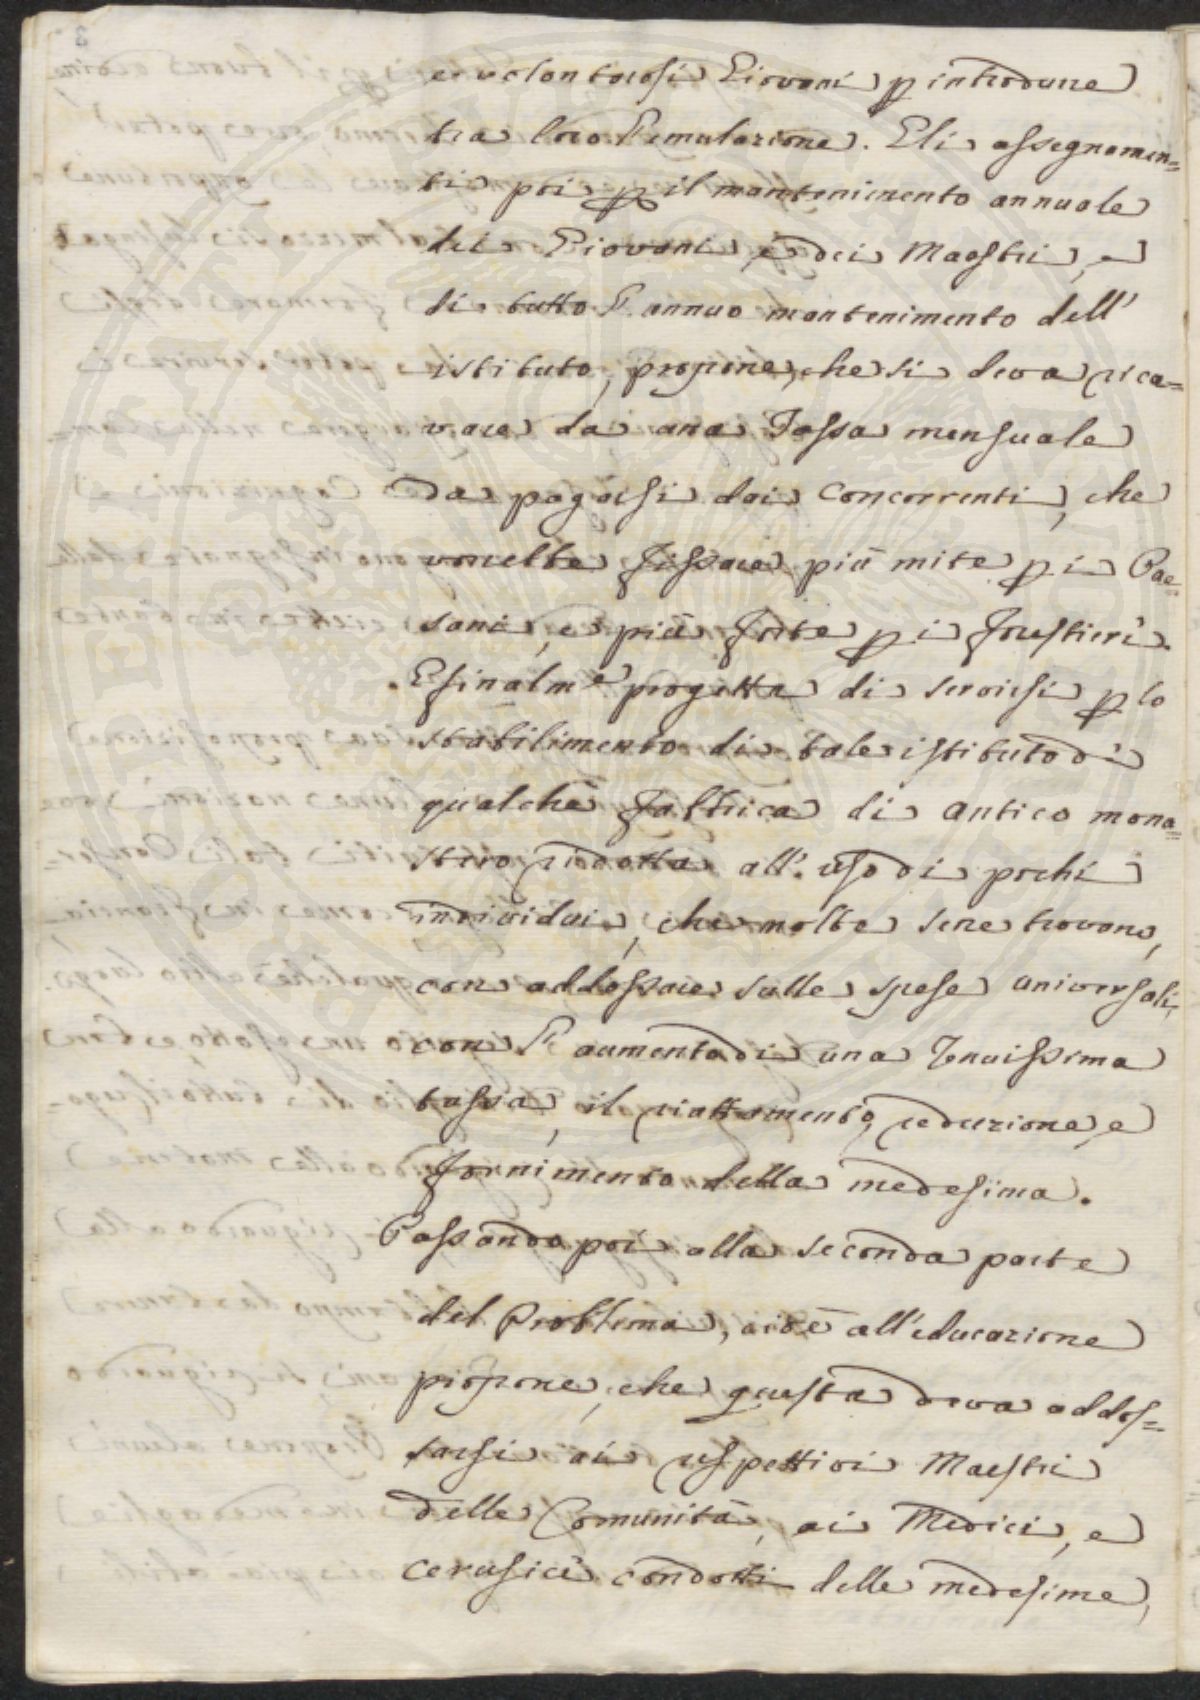 e volontarosi Giovani p introdurre
tra loro l'emulazione. Gli assegnamen=
ti poi p il mantenimento annuale
dei Giovani, e dei Maestri, e
di tutto l'annuo mantenimento dell'
istituto, propone, che si deva rica=
vare da una Tassa mensuale
da pagarsi dai concorrenti, che
vorrebbe fissare più mite p i Pae=
sani, e più forte p i forestieri.
E finalm.e progetta di servirsi p lo
stabilimento di tale istituto di
qualche fabbrica di antico mona=
stero ridotta all'uso di pochi
individui, che molte se ne trovano,
con addossare sulle spese universali,
con l'aumento di una tenuissima
tassa, il riattamento, reduzione, e
fornimento della medesima.
Passando poi alla seconda parte
del Problema, cioè all'educazione
propone, che questa deva addos=
sarsi ai respettivi Maestri
delle Comunità, ai Medici, e
cerusici condotti delle medesime,